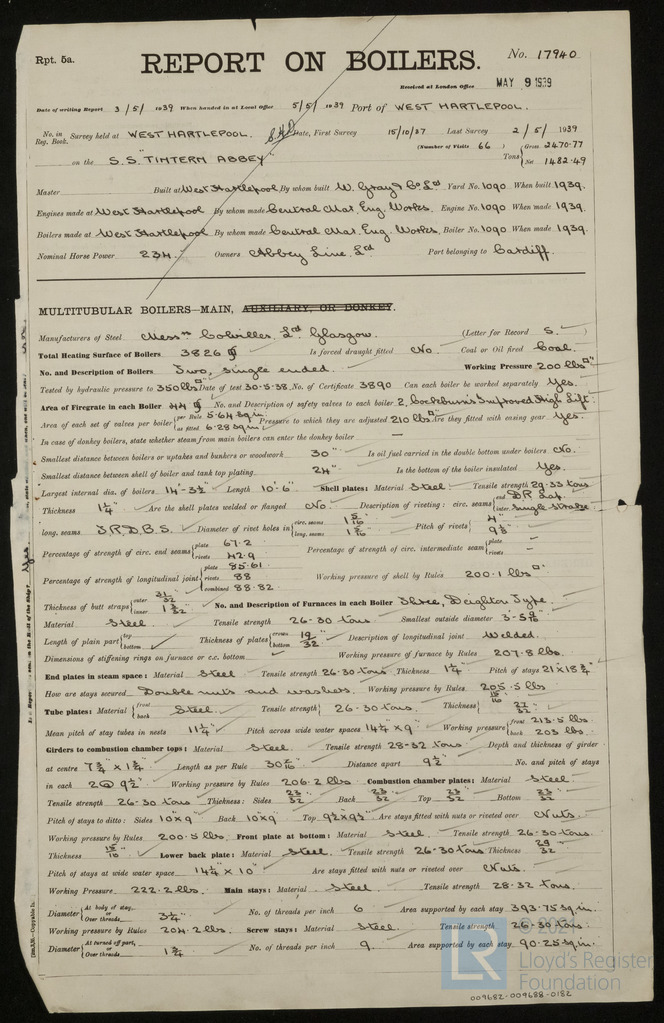 Rpt. 5a.
REPORT ON BOILERS.
No. 17940
Received at London Office MAY 9 1939
Date of writing Report 3/5/1939 When handed in at Local Office 5/5/1939 Port of WEST HARTLEPOOL.
No. in Reg. Book. Survey held at WEST HARTLEPOOL. Date, First Survey 15/10/37 Last Survey 2/5/1939
(Number of Visits 66)
on the S.S. "TINTERN ABBEY" Tons { Gross 2470.77 Net 1482.49
Master Built at West Hartlepool By whom built W. Gray & Co. Ltd Yard No. 1090 When built 1939.
Engines made at West Hartlepool By whom made Central Mar. Eng. Works. Engine No. 1090 When made 1939.
Boilers made at West Hartlepool By whom made Central Mar. Eng. Works. Boiler No. 1090 When made 1939.
Nominal Horse Power 234. Owners Abbey Line, Ltd Port belonging to Cardiff.
MULTITUBULAR BOILERS—MAIN, AUXILIARY, OR DONKEY.
Manufacturers of Steel Messrs Colvilles, Ltd Glasgow. (Letter for Record S.)
Total Heating Surface of Boilers 3826 Is forced draught fitted No. Coal or Oil fired Coal.
No. and Description of Boilers Two, single ended. Working Pressure 200 lbs□"
Tested by hydraulic pressure to 350 lbs□" Date of test 30.5.38. No. of Certificate 3890 Can each boiler be worked separately Yes.
Area of Firegrate in each Boiler 44 No. and Description of safety valves to each boiler 2, Cockburn's Improved High Lift.
Area of each set of valves per boiler { per Rule 5.64 sq in. as fitted 6.28 sq in. Pressure to which they are adjusted 210 lbs□" Are they fitted with easing gear Yes.
In case of donkey boilers, state whether steam from main boilers can enter the donkey boiler —
Smallest distance between boilers or uptakes and bunkers or woodwork 30" Is oil fuel carried in the double bottom under boilers No.
Smallest distance between shell of boiler and tank top plating. 24" Is the bottom of the boiler insulated Yes.
Largest internal dia. of boilers 14'-3½" Length 10'-6" Shell plates: Material Steel Tensile strength 29-33 tons
Thickness 1¼" Are the shell plates welded or flanged No. Description of riveting: circ. seams { end D.R. Lap. inter. Single Straps.
long. seams T.R.D.B.S. Diameter of rivet holes in { circ. seams 1 5/16 long. seams 1 5/16 Pitch of rivets { 4" 9⅛"
Percentage of strength of circ. end seams { plate 67.2 rivets 42.9 Percentage of strength of circ. intermediate seam { plate — rivets —
Percentage of strength of longitudinal joint { plate 85.61 rivets 88 combined 88.82 Working pressure of shell by Rules 200.1 lbs□"
Thickness of butt straps { outer 31/32 inner 1 3/32 No. and Description of Furnaces in each Boiler Three, Deighton Type.
Material Steel Tensile strength 26-30 tons Smallest outside diameter
Length of plain part { top bottom Thickness of plates { crown bottom 19/32 Description of longitudinal joint Welded.
Dimensions of stiffening rings on furnace or c.c. bottom Working pressure of furnace by Rules 207.8 lbs.
End plates in steam space: Material Steel Tensile strength 26-30 tons Thickness 1¼ Pitch of stays 21" x 18¾"
How are stays secured Double nuts and washers. Working pressure by Rules 205.5 lbs
Tube plates: Material { front back Steel Tensile strength { 26-30 tons. Thickness { 15/16 27/32
Mean pitch of stay tubes in nests 11¼" Pitch across wide water spaces 14¼" x 9" Working pressure { front 213.5 lbs back 203 lbs.
Girders to combustion chamber tops: Material Steel. Tensile strength 28-32 tons. Depth and thickness of girder
at centre 7¾" x 1¾" Length as per Rule Distance apart 9½" No. and pitch of stays
in each 2 @ 9½" Working pressure by Rules 206.2 lbs. Combustion chamber plates: Material Steel
Tensile strength 26-30 tons Thickness: Sides 23/32 Back 23/32 Top 23/32 Bottom 23/32
Pitch of stays to ditto: Sides 10" x 9" Back 10" x 9" Top 9½" x 9½" Are stays fitted with nuts or riveted over Nuts.
Working pressure by Rules 200.5 lbs. Front plate at bottom: Material Steel. Tensile strength 26-30 tons.
Thickness 15/16 Lower back plate: Material Steel. Tensile strength 26-30 tons Thickness 29/32
Pitch of stays at wide water space 14¼" x 10" Are stays fitted with nuts or riveted over Nuts.
Working Pressure 222.2 lbs. Main stays: Material Steel. Tensile strength 28-32 tons.
Diameter { At body of stay, or Over threads 3¼" No. of threads per inch 6 Area supported by each stay 393.75 sq in.
Working pressure by Rules 204.2 lbs. Screw stays: Material Steel. Tensile strength 26-30 tons.
Diameter { At turned off part, or Over threads 1¾" No. of threads per inch 9. Area supported by each stay 90.25 sq in.
LR
© 2021
Lloyd's Register
Foundation
009682-009688-0182